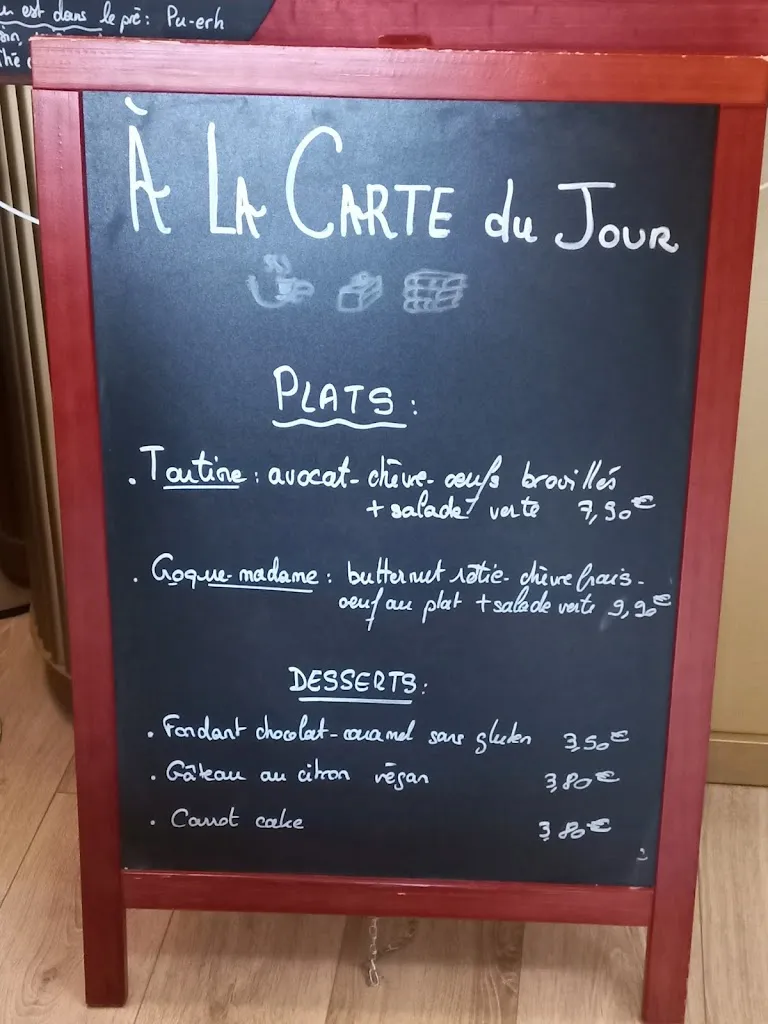 est dans le pré : Pu-erh
À La Carte du Jour
PLATS :
. Tartine : avocat - chèvre - œufs brouillés
+ salade verte 7,90€
. Croque-madame : butternut rôtie - chèvre frais -
œuf au plat + salade verte 9,90€
DESSERTS :
. Fondant chocolat-caramel sans gluten 3,50€
. Gâteau au citron végan 3,80€
. Carrot cake 3,80€